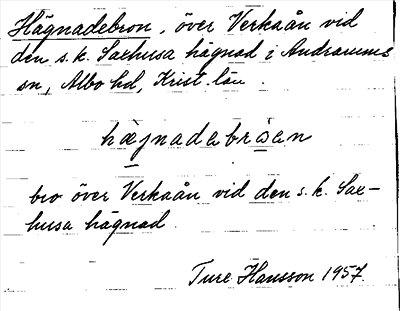 Hägnadebron, över Verkaån vid
den s.k. Saxhusa hägnad i Andrarums
sn, Albo hd, Krist. län.
hæ̀jnadebrɔen
bro över Verkaån vid den s.k. Sax-
husa hägnad.
Ture Hansson 1957.